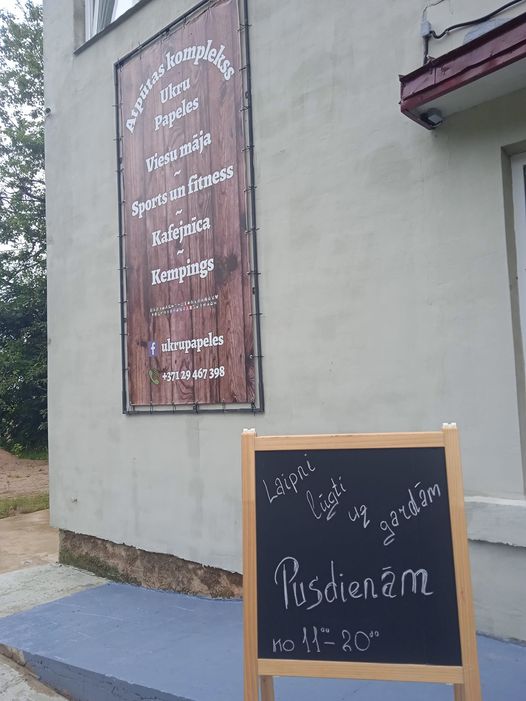 Atpūtas komplekss
Ukru
Papeles
Viesu māja
~
Sports un fitness
~
Kafejnīca
~
Kempings
ukrupapeles
+371 29 467 398
Laipni
lūgti
uz
gardām
Pusdienām
no 11⁰⁰-20⁰⁰